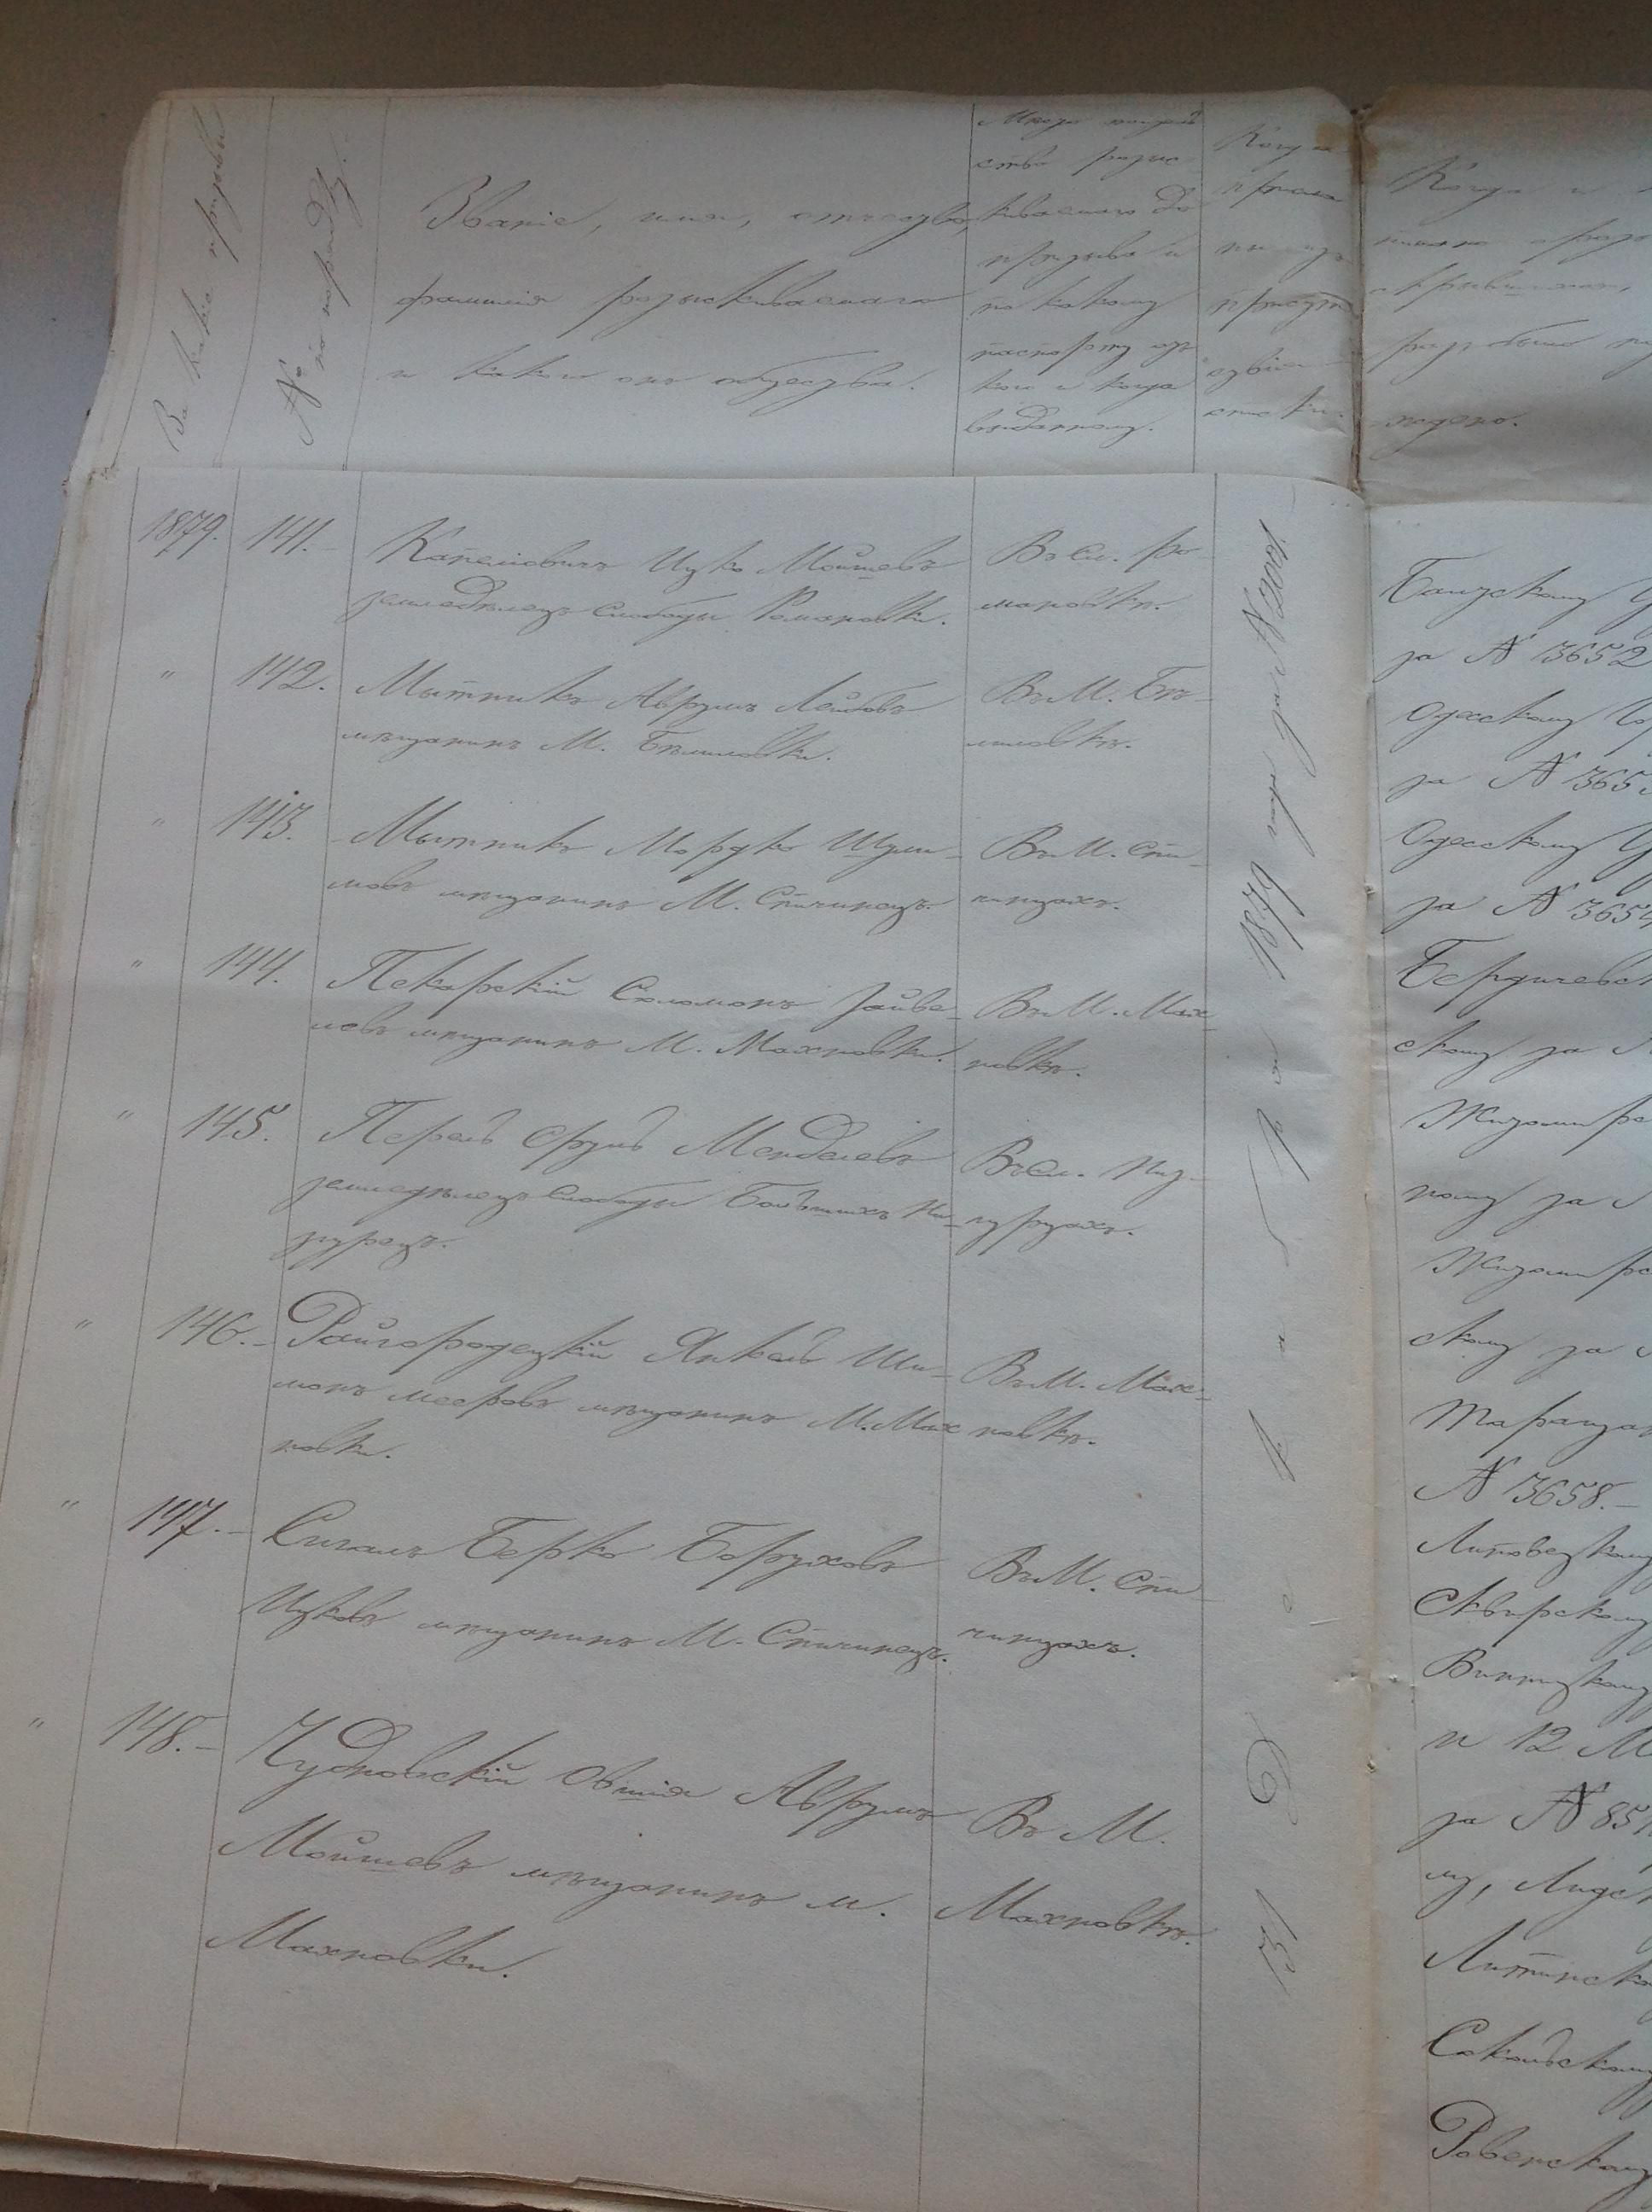 За какіе призывы
№ по порядку.
Званіе, имя, отчество,
фамилія разыскиваемаго
и какого онъ общества.
Мѣсто жительства
разыскиваемаго до
призыва и
по какому
паспорту отъ
кого и когда
выданному.
Когда
Когда и
1879. 141. Капеліовичъ Ицко Мойшевъ
земледѣлецъ слободы Романовки.
Въ сл. Ро-
мановкѣ.
" 142. Мытникъ Аврумъ Лейбовъ
мѣщанинъ М. Бѣлиловки.
Въ М. Бѣ-
лиловкѣ.
" 143. Мытникъ Мордко Шули-
мовъ мѣщанинъ М. Спичинецъ.
Въ М. Спи-
чинцахъ.
" 144. Пекарскій Соломонъ Зайве-
левъ мѣщанинъ М. Махновки.
Въ М. Мах-
новкѣ.
" 145. Перель Сруль Менделевъ
земледѣлецъ слободы Большихъ Ни-
зурецъ.
Въ сл. Низ-
гурцахъ.
" 146. Райгородецкій Янкель Ши-
монъ Мееровъ мѣщанинъ М. Мах
новки.
Въ М. Мах-
новкѣ.
" 147. Сигалъ Берко Боруховъ
Ицковъ мѣщанинъ М. Спичинецъ.
Въ М. Спи
чинцахъ.
" 148. Чудновскій Овшія Аврумъ
Мойшевъ мѣщанинъ м.
Махновки.
Въ М.
Махновкѣ.
31 Декабря 1879 года за №2001.
за № 3652
Одесскому
за № 365
Одесскому
за № 3654
Бердичевс
скому за
Житомирс
ному за
Житомирс
скому за
Таращан
№ 3658.
Липовецкому
Сквирскому
Винницкому
и 12 М
за № 851
му, Лидс
Литинско
Сокольскому
Ровенскому